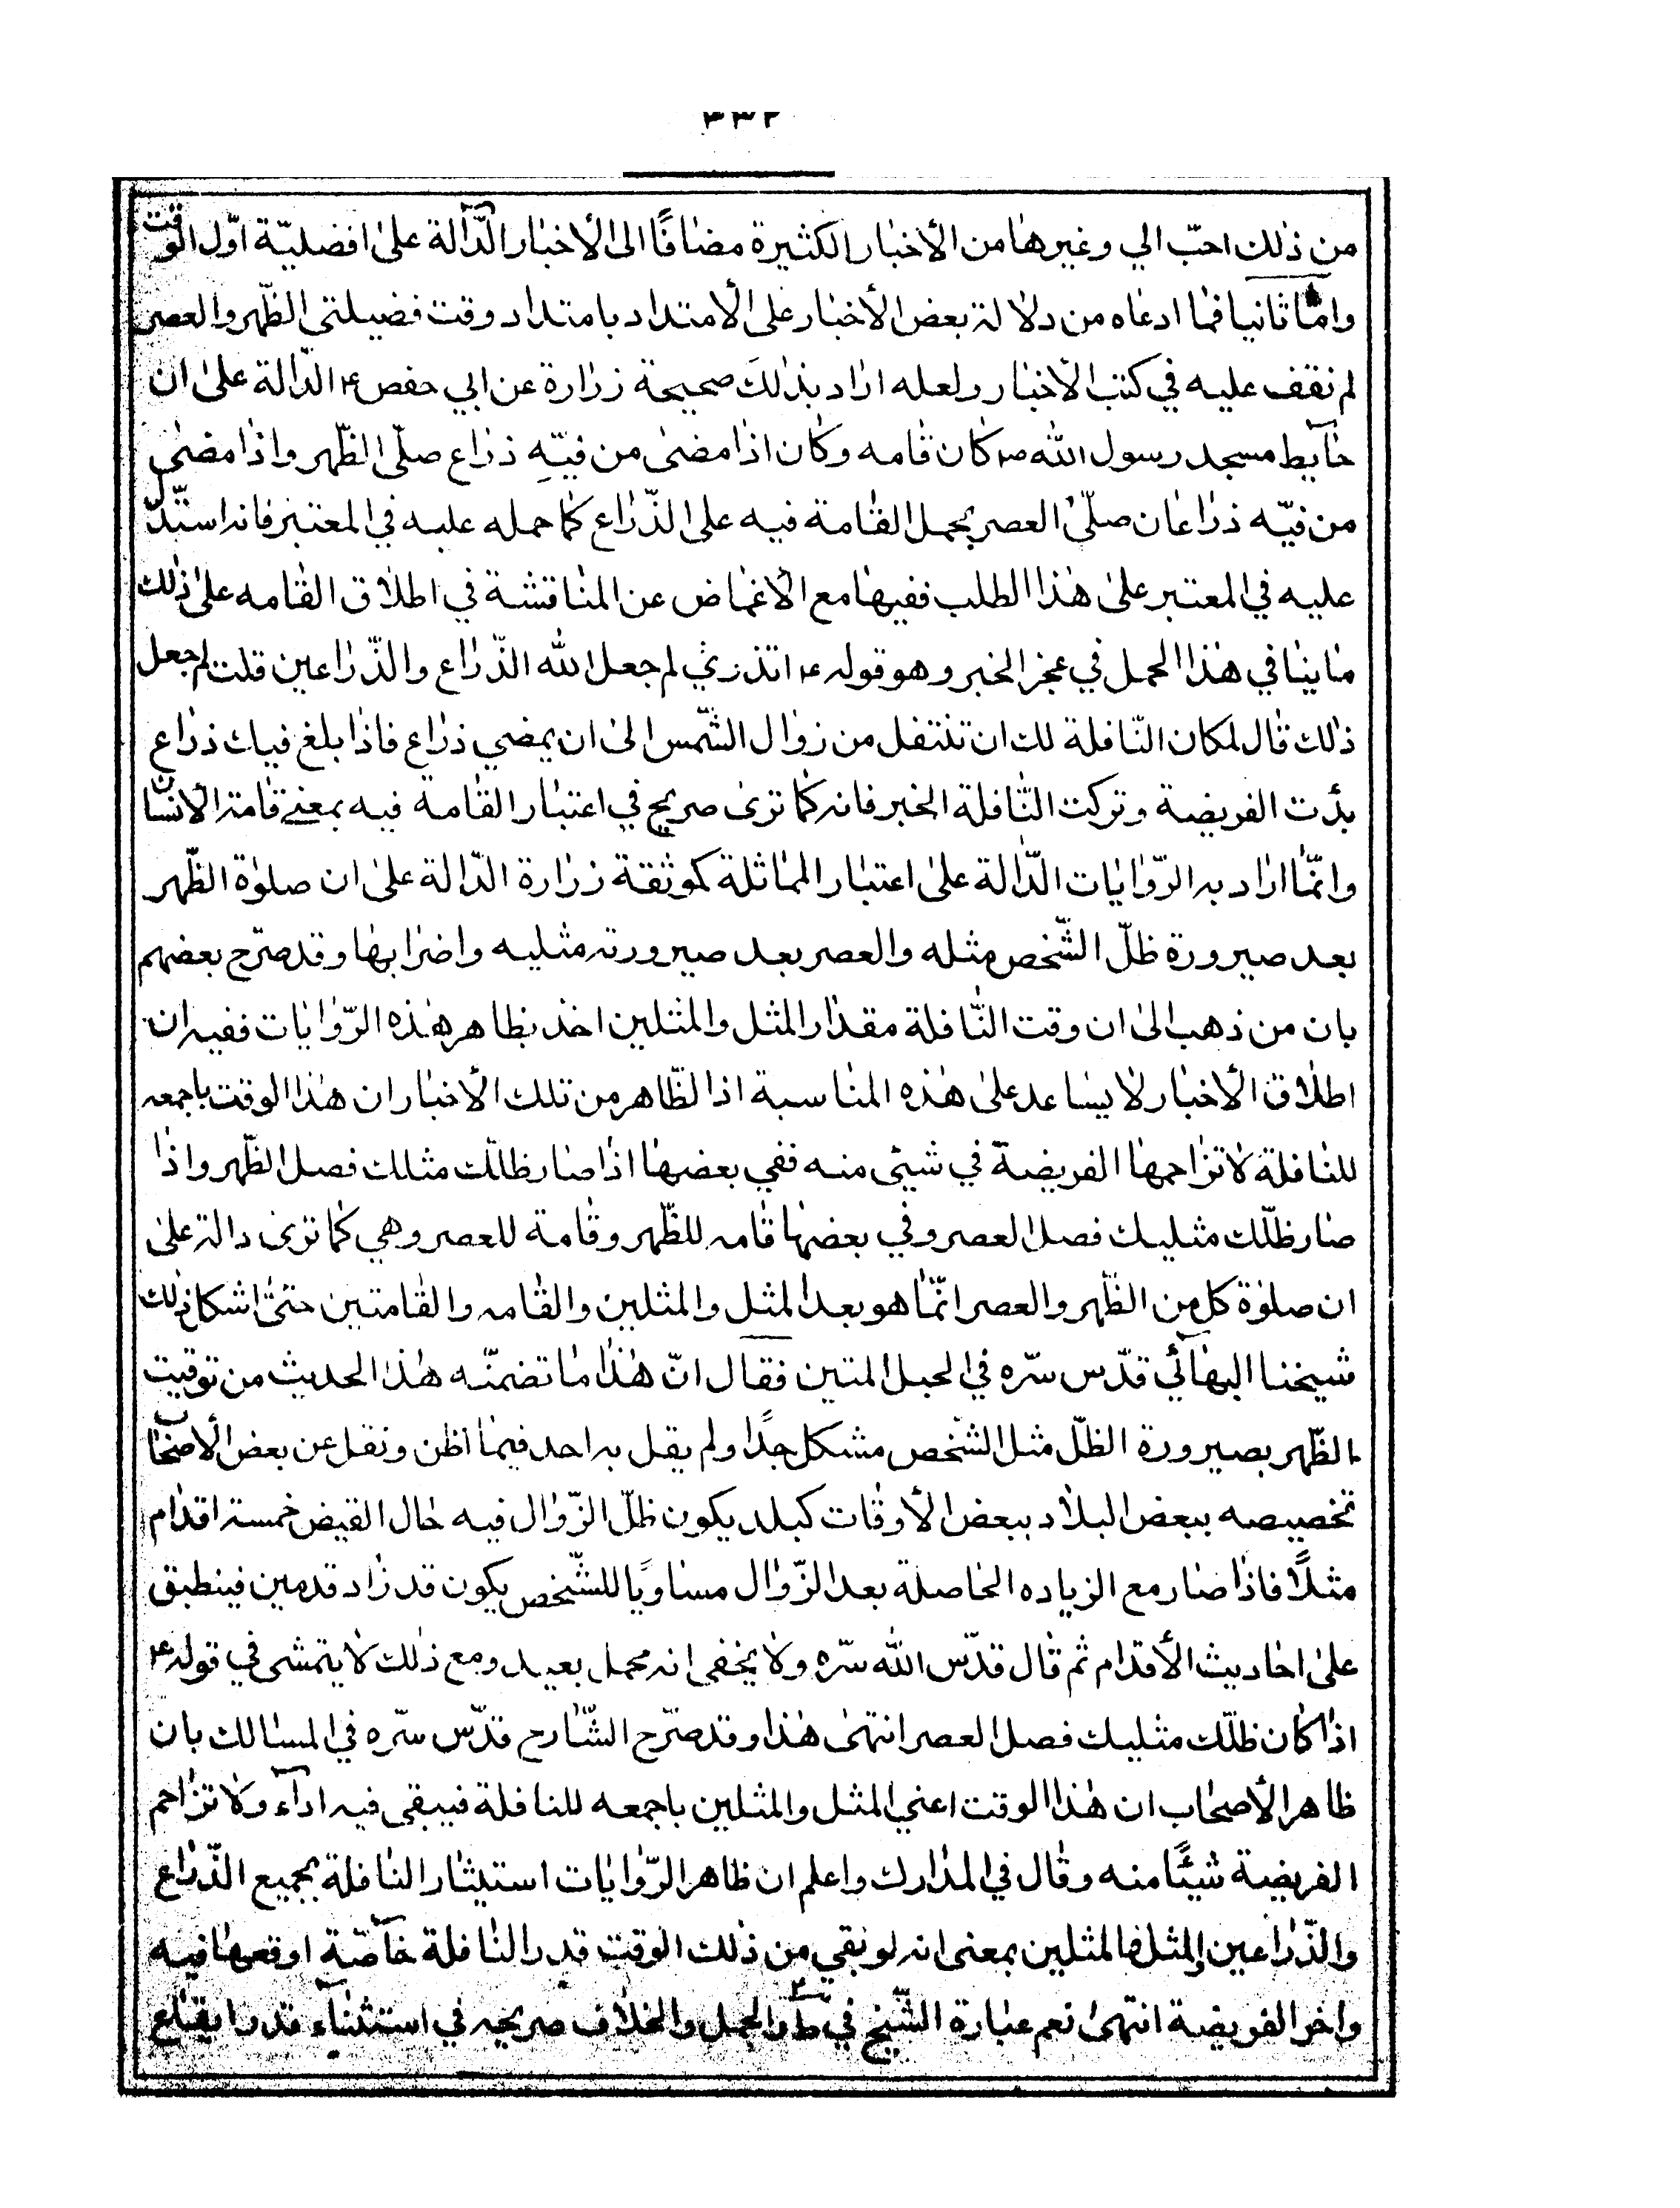 ٣٣٢
من ذلك احبّ الي وغيرها من الأخبار الكثيرة مضافًا الى الأخبار الدّالة على افضليّة اوّل الوقت
وامّا ثانيا فما ادعاه من دلالة بعض الأخبار على الأمتداد بامتداد وقت فضيلتى الظّهر والعصر
لم نقف عليه في كتب الأخبار ولعله اراد بذلك صحيحة زرارة عن ابي حفص ع الدّالة على ان
حآيط مسجد رسول الله ص كان قامه وكان اذا مضى من فيّه ذراع صلّى الظّهر واذا مضى
من فيّه ذراعان صلّى العصر بحمل القامة فيه على الذّراع كما حمله عليه في المعتبر فانه استدّل
عليه في المعتبر على هذا الطلب ففيها مع الأغماض عن المناقشة في اطلاق القامه على ذلك
ما ينافي هذا الحمل في عجز الخبر وهو قوله ع اتدري لم جعل الله الذّراع والذّراعين قلت لم جعل
ذلك قال لمكان النّافلة لك ان تنتفل من زوال الشّمس الى ان يمضي ذراع فاذا بلغ فيك ذراع
بدأت الفريضة وتركت النّافلة الخبر فانه كما ترى صريح في اعتبار القامة فيه بمعنى قامة الأنسان
وانّما اراد به الرّوايات الدّالة على اعتبار المماثلة كموثقة زرارة الدّالة على ان صلوة الظّهر
بعد صيرورة ظلّ الشّخص مثله والعصر بعد صيرورته مثليه واضرابها وقد صرّح بعضهم
بان من ذهب الى ان وقت النّافلة مقدار المثل والمثلين اخذ بظاهر هذه الرّوايات ففيه ان
اطلاق الأخبار لا يساعد على هذه المناسبة اذ الظّاهر من تلك الأخبار ان هذا الوقت باجمعه
للنافلة لا تزاحمها الفريضة في شيئ منه ففي بعضها اذا صار ظللّك مثلك فصل الظّهر واذا
صار ظلّك مثليك فصل العصر وفي بعضها قامه للظّهر وقامة للعصر وهي كما ترى دالة على
ان صلوة كل من الظّهر والعصر انّما هو بعد المثل والمثلين والقامه والقامتين حتى اشكل ذلك
شيخنا البهآئي قدّس سرّه في الحبل المتين فقال انّ هذا ما تضمنّه هذا الحديث من توقيت
الظّهر بصيرورة الظلّ مثل الشّخص مشكل جدًا ولم يقل به احد فيما اظن ونقل عن بعض الأصحاب
تخصيصه ببعض البلاد ببعض الأوقات كبلد يكون ظلّ الزّوال فيه حال القيض خمسة اقدام
مثلًا فاذا صار مع الزياده الحاصلة بعد الزّوال مساويًا للشّخص يكون قد زاد قدمين فينطبق
على احاديث الأقدام ثم قال قدّس الله سرّه ولا يخفى انه محمل بعيد ومع ذلك لا يتمشى في قوله ع
اذا كان ظلّك مثليك فصل العصر انتهى هذا وقد صرّح الشّارح قدّس سرّه في المسالك بان
ظاهر الأصحاب ان هذا الوقت اعني المثل والمثلين باجمعه للنافلة فيبقى فيه ادآء ولا تزاحم
الفريضة شيئًا منه وقال في المدارك واعلم ان ظاهر الرّوايات استيثار النافلة بجميع الذّراع
والذّراعين والمثل والمثلين بمعنى انه لو بقي من ذلك الوقت قدر النافلة خآصّة اوقعها فيه
واخر الفريضة انتهى نعم عبارة الشّيخ في ط والجمل والخلاف صريحه في استثنآء قدر ايقاع